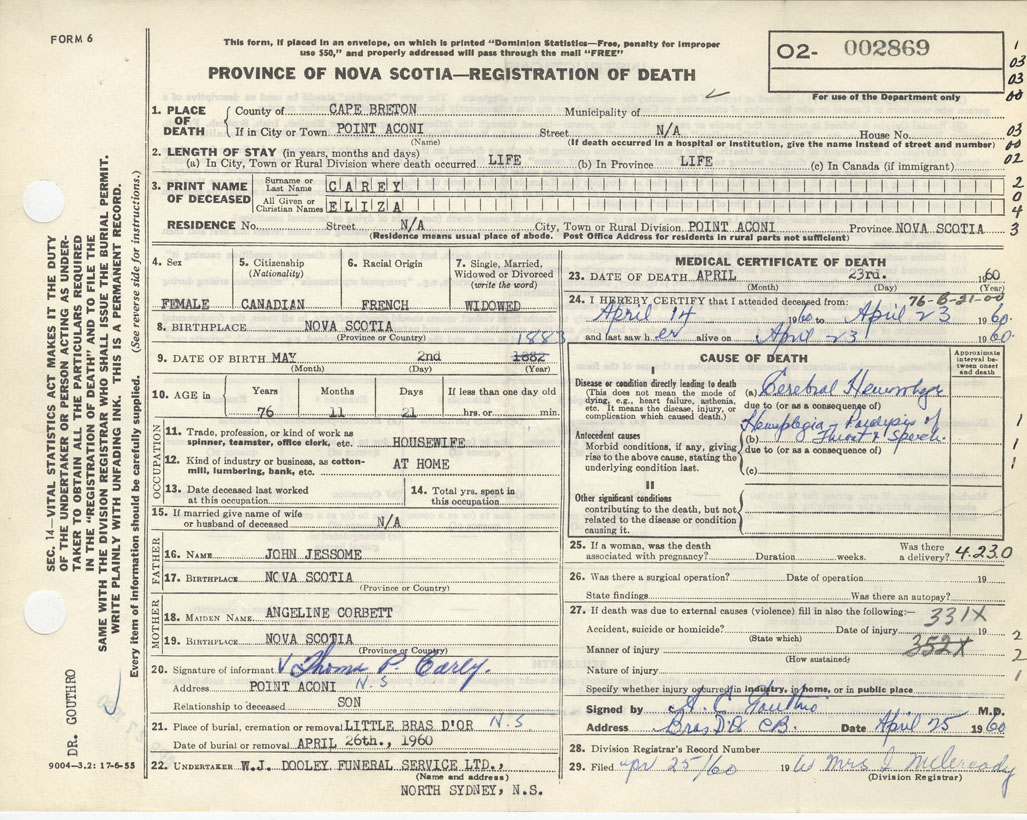 FORM 6
This form, if placed in an envelope, on which is printed "Dominion Statistics—Free, penalty for improper
use $50," and properly addressed will pass through the mail "FREE"
PROVINCE OF NOVA SCOTIA—REGISTRATION OF DEATH
O2- 002869
For use of the Department only
1. PLACE OF DEATH County of CAPE BRETON Municipality of
If in City or Town POINT ACONI Street N/A House No.
(Name) (If death occurred in a hospital or Institution, give the name instead of street and number)
2. LENGTH OF STAY (in years, months and days)
(a) In City, Town or Rural Division where death occurred LIFE (b) In Province LIFE (c) In Canada (if immigrant)
3. PRINT NAME OF DECEASED Surname or Last Name CAREY
All Given or Christian Names ELIZA
RESIDENCE No. Street N/A City, Town or Rural Division POINT ACONI Province NOVA SCOTIA
(Residence means usual place of abode. Post Office Address for residents in rural parts not sufficient)
4. Sex 5. Citizenship (Nationality) 6. Racial Origin 7. Single, Married, Widowed or Divorced (write the word)
FEMALE CANADIAN FRENCH WIDOWED
8. BIRTHPLACE NOVA SCOTIA
(Province or Country) 1883
9. DATE OF BIRTH MAY 2nd 1882
(Month) (Day) (Year)
10. AGE in Years Months Days If less than one day old
76 11 21 hrs. or min.
OCCUPATION
11. Trade, profession, or kind of work as spinner, teamster, office clerk, etc. HOUSEWIFE
12. Kind of industry or business, as cotton-mill, lumbering, bank, etc. AT HOME
13. Date deceased last worked at this occupation 14. Total yrs. spent in this occupation
15. If married give name of wife or husband of deceased N/A
FATHER
16. NAME JOHN JESSOME
17. BIRTHPLACE NOVA SCOTIA
(Province or Country)
MOTHER
18. MAIDEN NAME ANGELINE CORBETT
19. BIRTHPLACE NOVA SCOTIA
(Province or Country)
20. Signature of informant Thomas P. Carey.
Address POINT ACONI N.S
Relationship to deceased SON
21. Place of burial, cremation or removal LITTLE BRAS D'OR N.S
Date of burial or removal APRIL 26th., 1960
22. UNDERTAKER W.J. DOOLEY FUNERAL SERVICE LTD.,
(Name and address)
NORTH SYDNEY, N.S.
MEDICAL CERTIFICATE OF DEATH
23. DATE OF DEATH APRIL 23rd. 1960
(Month) (Day) (Year)
76-6-21-00
24. I HEREBY CERTIFY that I attended deceased from:
April 14 1960 to April 23 1960.
and last saw her alive on April 23 1960.
CAUSE OF DEATH
Approximate interval between onset and death
I
Disease or condition directly leading to death
(This does not mean the mode of dying, e.g., heart failure, asthenia, etc. It means the disease, injury, or complication which caused death.)
(a) Cerebral Hemorrhage
due to (or as a consequence of)
Antecedent causes
Morbid conditions, if any, giving rise to the above cause, stating the underlying condition last.
Hemiplegia - Paralysis of
(b) Throat & Speech.
due to (or as a consequence of)
(c)
II
Other significant conditions
contributing to the death, but not related to the disease or condition causing it.
25. If a woman, was the death associated with pregnancy? Duration weeks. Was there a delivery? 4.23.0
26. Was there a surgical operation? Date of operation 19
State findings Was there an autopsy?
27. If death was due to external causes (violence) fill in also the following:— 331X
Accident, suicide or homicide? Date of injury 19
(State which) 352X
Manner of injury
(How sustained)
Nature of injury
Specify whether injury occurred in industry, in home, or in public place
Signed by Gouthro M.D.
Address Bras D'Or CB. Date April 25 1960
28. Division Registrar's Record Number
29. Filed Apr 25/60 19 Mrs J McCready
(Division Registrar)
SEC. 14—VITAL STATISTICS ACT MAKES IT THE DUTY
OF THE UNDERTAKER OR PERSON ACTING AS UNDER-
TAKER TO OBTAIN ALL THE PARTICULARS REQUIRED
IN THE "REGISTRATION OF DEATH" AND TO FILE THE
SAME WITH THE DIVISION REGISTRAR WHO SHALL ISSUE THE BURIAL PERMIT.
WRITE PLAINLY WITH UNFADING INK. THIS IS A PERMANENT RECORD.
Every item of information should be carefully supplied. (See reverse side for instructions.)
DR. GOUTHRO
9004—3.2: 17-6-55
1
03
03
00
03
00
02
2
0
4
3
1
1
1
2
2
1